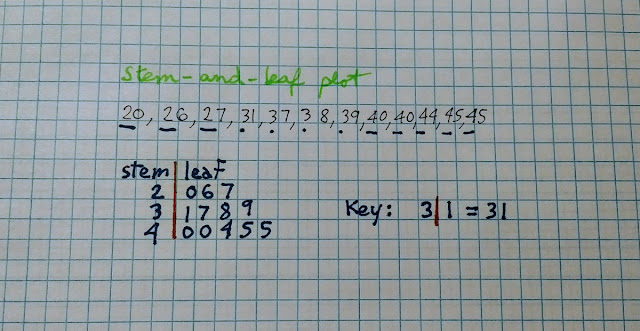 stem-and-leaf plot
20, 26, 27, 31, 37, 38, 39, 40, 40, 44, 45, 45
stem | leaf
2 | 0 6 7
3 | 1 7 8 9
4 | 0 0 4 5 5
Key: 3 | 1 = 31